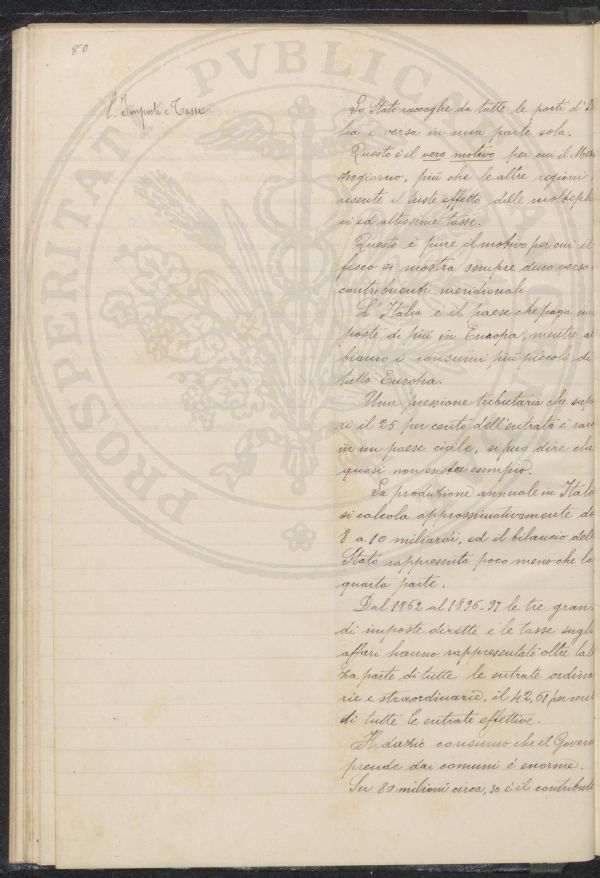 80
l. Imposte e Tasse
PROSPERITATI PVBLICAE
Lo Stato raccoglie da tutte le parti d'Ita
lia e versa in una parte sola.
Questo è il vero motivo per cui il Mez
zogiorno, più che le altre regioni,
risente il triste effetto delle moltepli
ci ed altissime tasse.
Questo è pure il motivo per cui il
fisco si mostra sempre duro verso
contribuenti meridionali.
L'Italia è il paese che paga im
poste di più in Europa, mentre ab
biamo i consumi più piccoli di
tutta Europa.
Una pressione tributaria che supe
ri il 25 per cento dell'entrata è raro
in un paese civile, si può dire che
quasi non esista esempio.
La produzione annuale in Italia
si calcola approssimativamente da
8 a 10 miliardi, ed il bilancio dello
Stato rappresenta poco meno che la
quarta parte.
Dal 1862 al 1896-97 le tre gran
di imposte dirette e le tasse sugli
affari hanno rappresentato oltre la
za parte di tutte le entrate ordina
rie e straordinarie, il 42,61 per cento
di tutte le entrate effettive.
Il dazio consumo che il Govern
prende dai comuni è enorme.
Su 80 milioni circa, 30 è il contributo